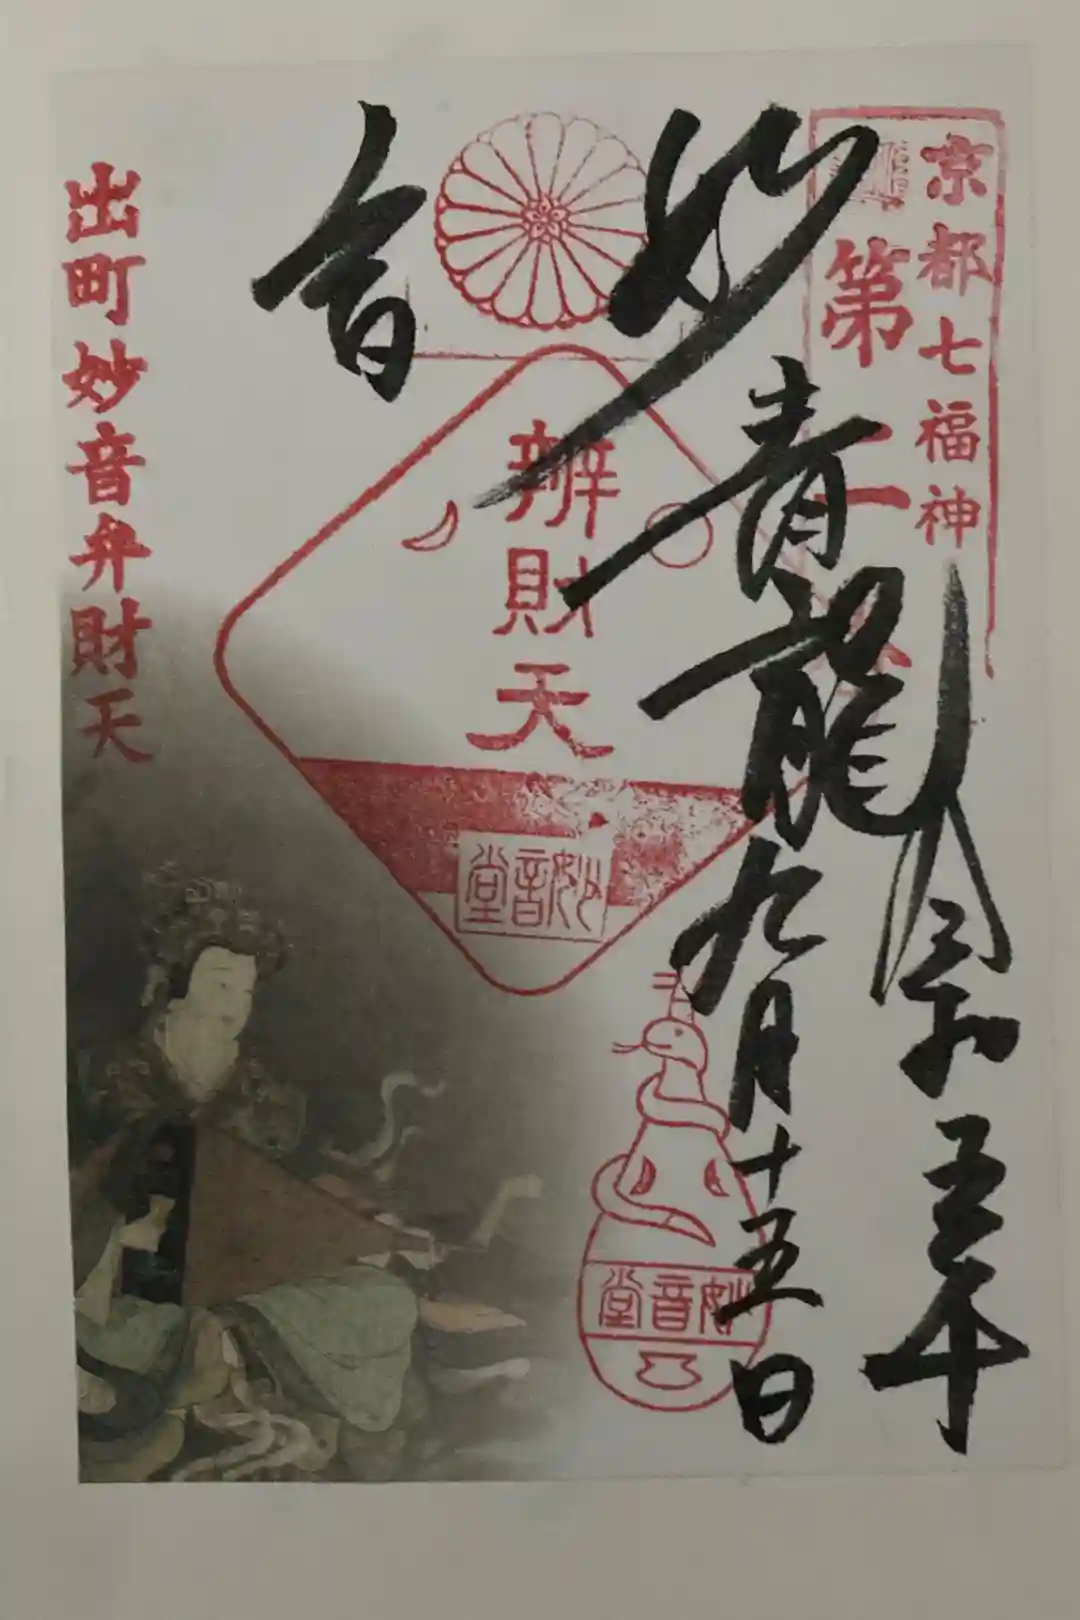 京都七福神
第二番
令和五年
青龍九月十五日
妙
音
辨財天
妙音堂
妙音堂
出町妙音弁財天